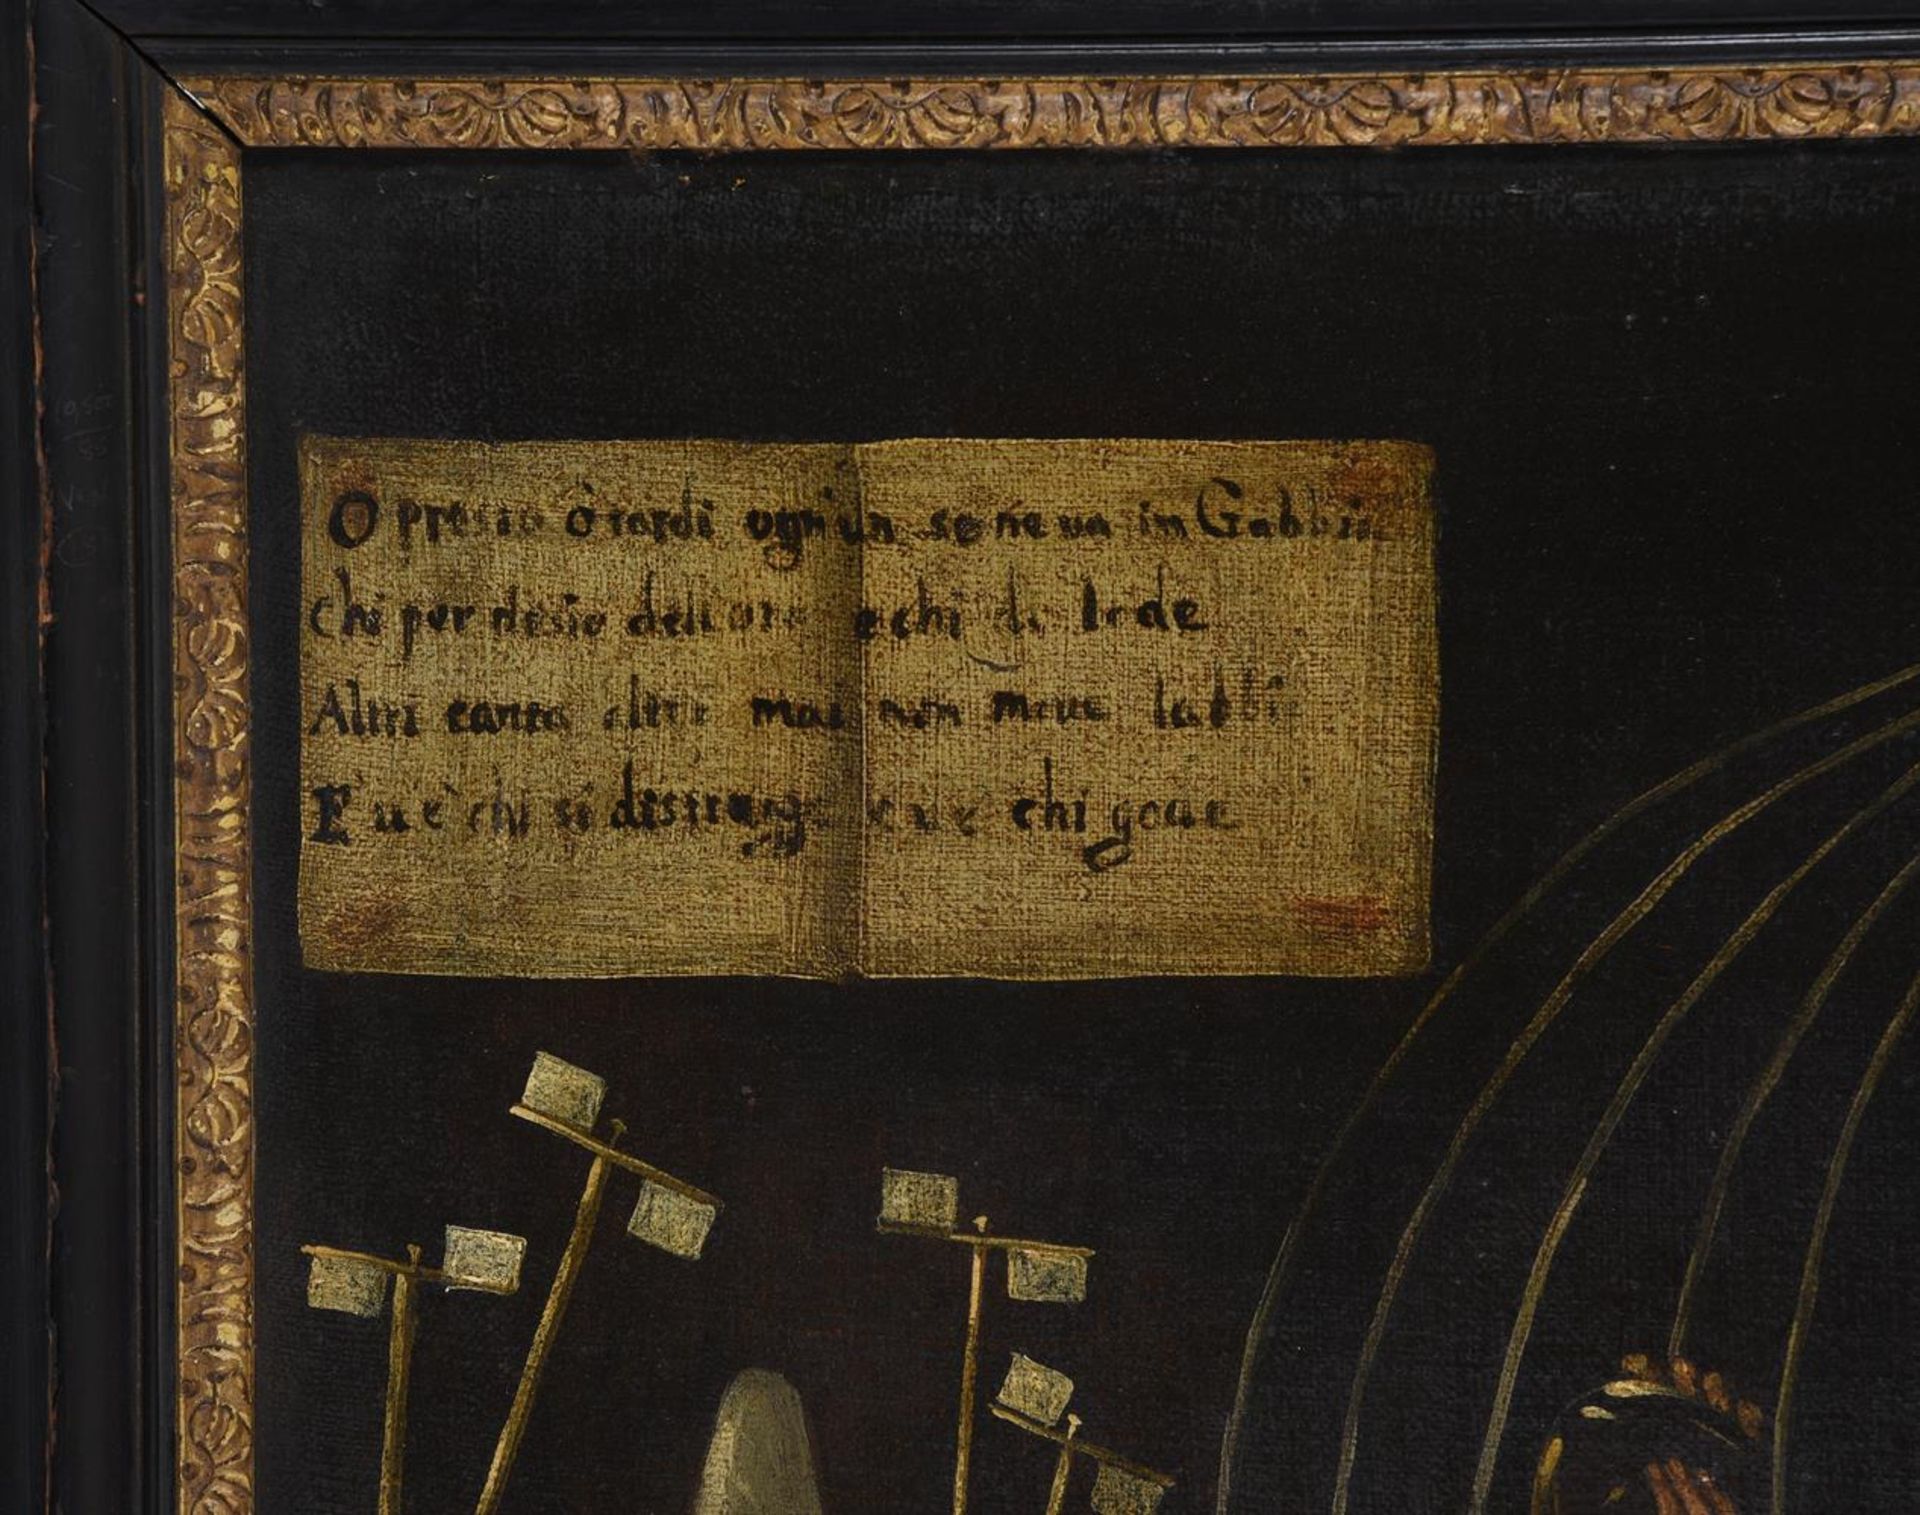 O presto ò tardi ogni un se ne va in Gabbia
Chi per desio dell oro e chi di lode
Altri canta altri mai non move labbia
E u è chi si distrugge e ue chi gode